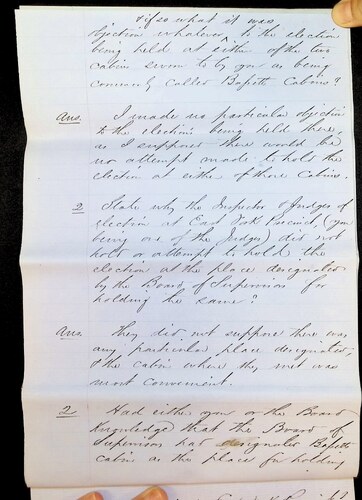 if so what it was
Objection whatever, to the election
being held at either of the two
cabins seem to by you as being
commonly called Bassetts Cabins?
Ans. I made no particular objection
to the election being held there,
as I suppose there would be
no attempt made to hold the
election at either of those Cabins.
2 State why the Inspector & Judges of
election at East Fork Precinct, (you
being one of the Judges) did not
hold or attempt to hold the
election at the place designated
by the Board of Supervisors for
holding the same?
Ans. They did not suppose there was
any particular place designated,
& the cabin where they met was
most convenient.
2 Had either you or the Board
Knowledge that the Board of
Supervisors had designated Bassetts
cabin as the place for holding